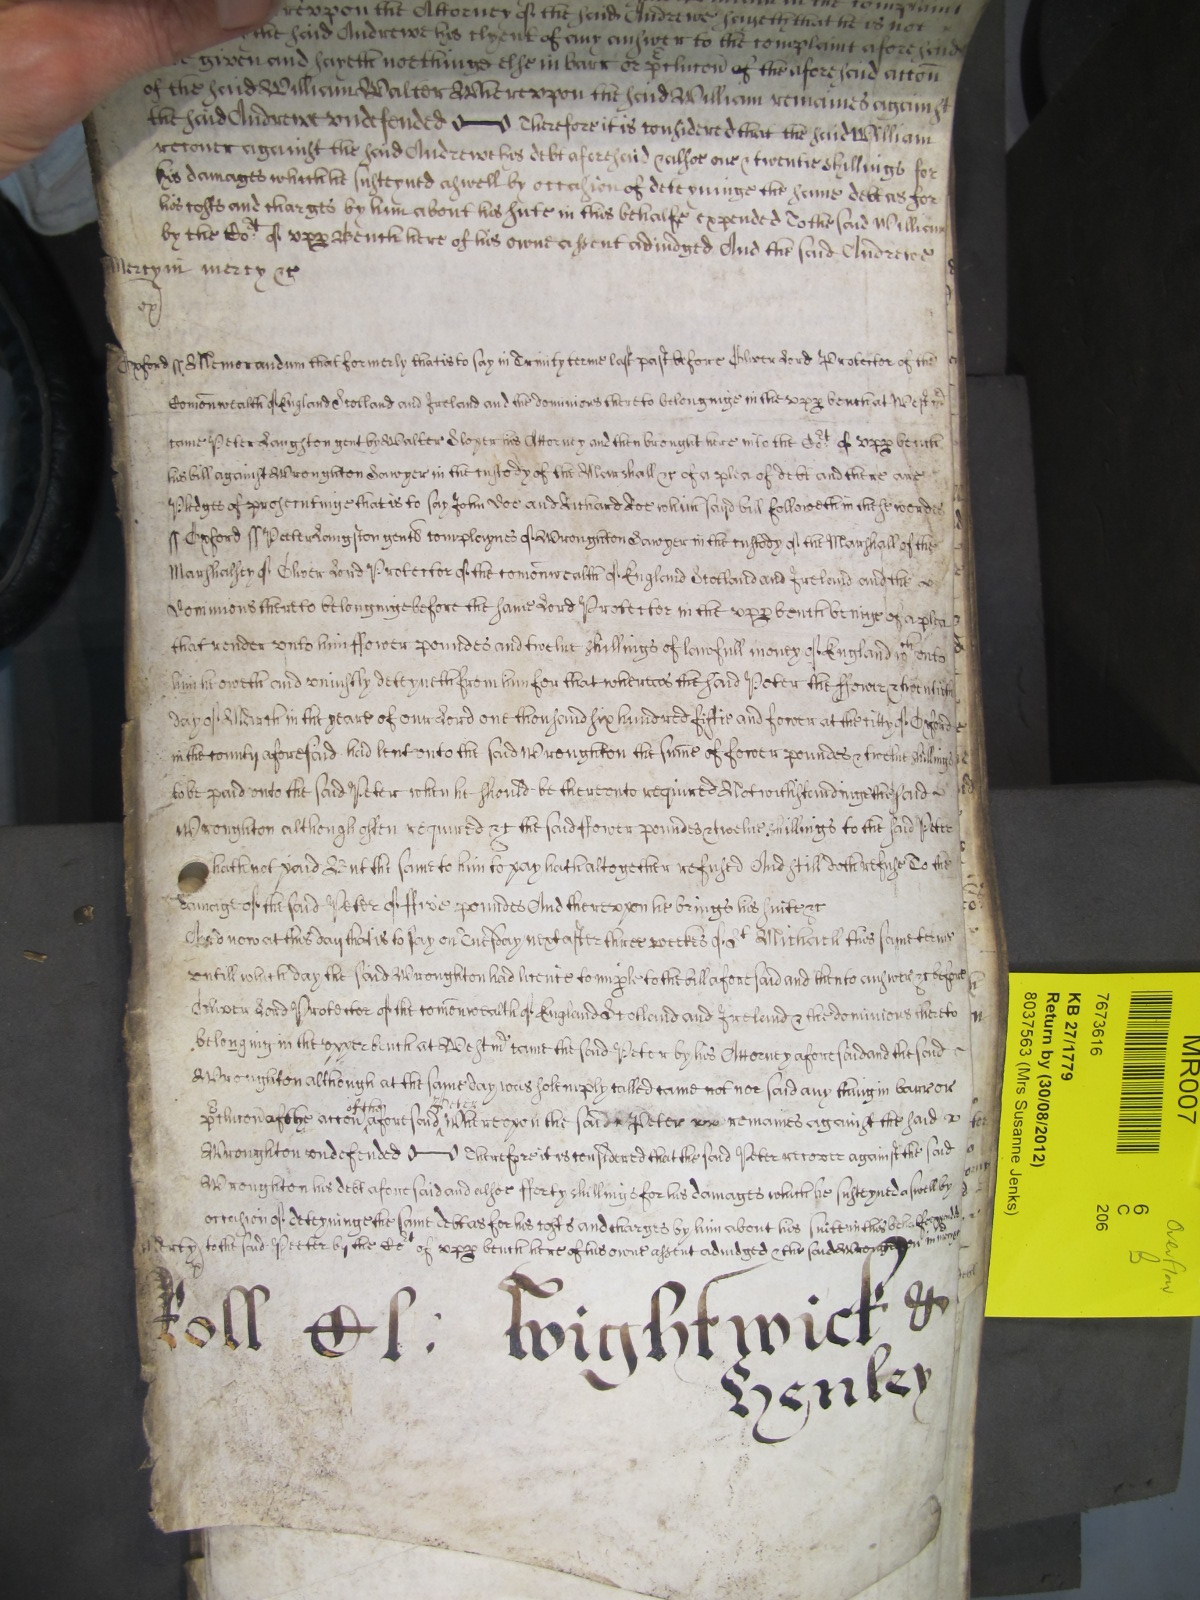 upon the Attorney of the said Andrewe sayeth that he is not
the said Andrewe his clyent of any answer to the complaint aforesaid
given and sayeth noethinge else in barr or p̱clusion of the aforesaid accon
of the said William Walter Whereupon the said William remaines against
the said Andrewe undefended Therefore it is considered that the said William
recover against the said Andrewe his debt aforesaid & alsoe one & twentie shillings for
his damages which he susteyned aswell by occasion of deteyninge the same debt as for
his costs and charges by him about his sute in this behalfe expended To the said William
by the Cot of upp Bench here of his owne assent adiudged And the said Andrewe
Mercy in mercy &c
Oxford ss Memorandum that formerly that is to say in Trinity terme last past before Oliver Lord Protector of the
Comonwealth of England Scotland and Ireland and the dominions thereto belonginge in the upp bench at Westmr
came Peter Langston gent by Walter his Attorney and then brought here into the Cot of upp bench
his bill against Wroughton Sawyer in the custody of the Marshall &c of a plea of debt and there are
Pledges of prosecutinge that is to say John Doe and Richard Roe which said bill followeth in these wordes
ss Oxford ss Peter Langston gent complaynes of Wroughton Sawyer in the custody of the Marshall of the
Marshalsey of Oliver Lord Protector of the comonwealth of England Scotland and Ireland and the
Dominions thereto belonginge before the same Lord Protector in the upp bench beinge of a plea
that render unto him ffower poundes and twelve shillings of lawfull money of England wch unto
him he oweth and uniustly deteyneth from him for that whereas the said Peter the ffower & twentieth
day of March in the yeare of our Lord one thousand six hundred fiftie and fower at the citty of Oxford
in the county aforesaid had lent unto the said Wroughton the sume of fower poundes & twelve shillings
to be paid unto the said Peter when he should be thereunto required Notwithstandinge the said
Wroughton although often required &c the said ffower poundes & twelve shillings to the said Peter
hath not paid But the same to him to pay hath altogether refused And still doth refuse To the
damage of the said Peter of ffive poundes And thereupon he brings his suite &c
And now at this day that is to say on Tuesday next after three weekes of St Michaell this same terme
untill which day the said Wroughton had licence to imple to the bill aforesaid and then to answer &c before
Oliver Lord Protector of the comonwealth of England Scotland and Ireland & the dominions thereto
belonging in the upper bench at Westmr came the said Peter by his Attorney aforesaid and the said
Wroughton although at the same day was solempnly called came not nor said any thing in barr or
p̱clusion of the accon of the aforesaid Peter Whereupon the said Peter remaines against the said
Wroughton undefended Therefore it is considered that the said Peter recover against the said
Wroughton his debt aforesaid and alsoe fforty shillings for his damages which he susteyned aswell by
occasion of deteyninge the same debt as for his costs and charges by him about his suite in this behalfe expended
Mercy to the said Peeter by the Cot of upp bench here of his owne assent adiudged & the said Wroughton in mercy
Roll Wightwick &
Henley
MR007
6
C
206
Overflow
7673616
KB 27/1779
Return by (30/08/2012)
8037563 (Mrs Susanne Jenks)